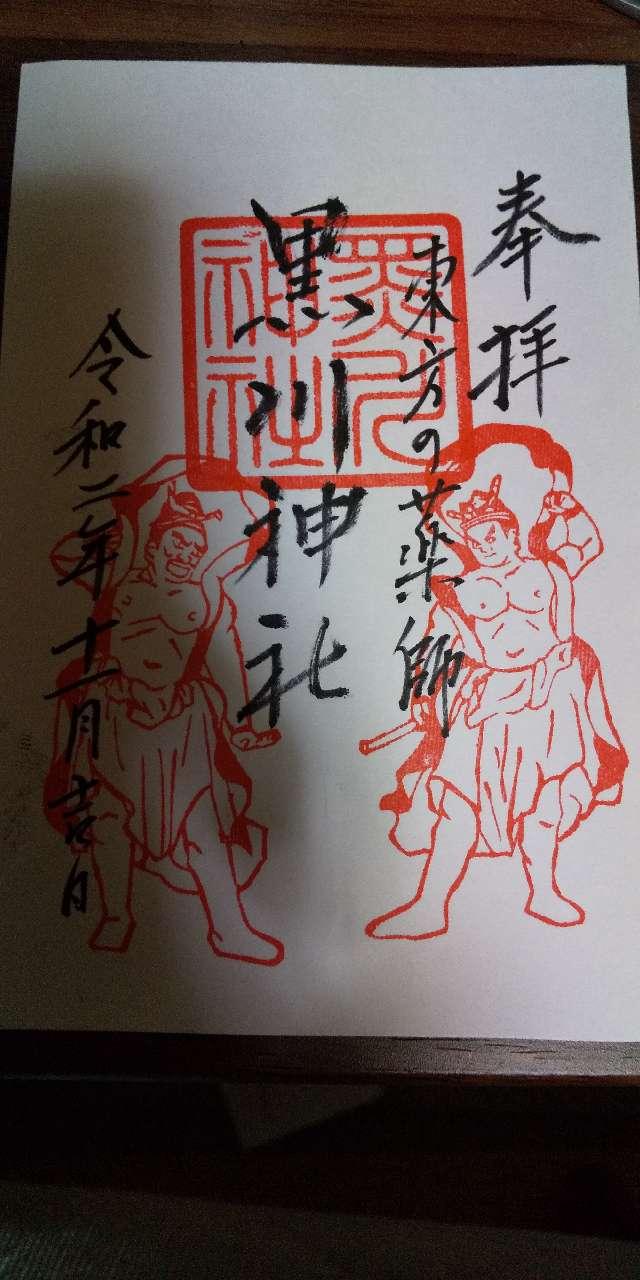 奉拝
東方の薬師
黒川神社
黒川神社
令和二年十一月吉日